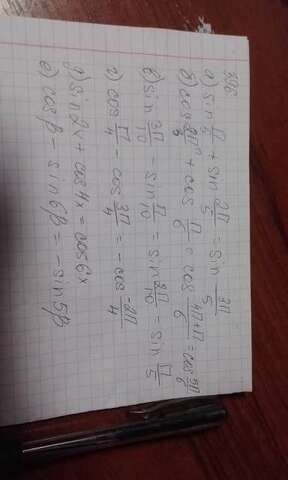 а) sin π/5 + sin 2π/5 = sin 3π/5
б) cos 2π/3 + cos π/6 = cos 4π+π/6 = cos 5π/6
в) sin 3π/10 - sin π/10 = sin 2π/10 = sin π/5
г) cos π/4 - cos 3π/4 = - cos -2π/4
д) sin 2x + cos 4x = cos 6x
е) cos β - sin 6β = - sin 5β